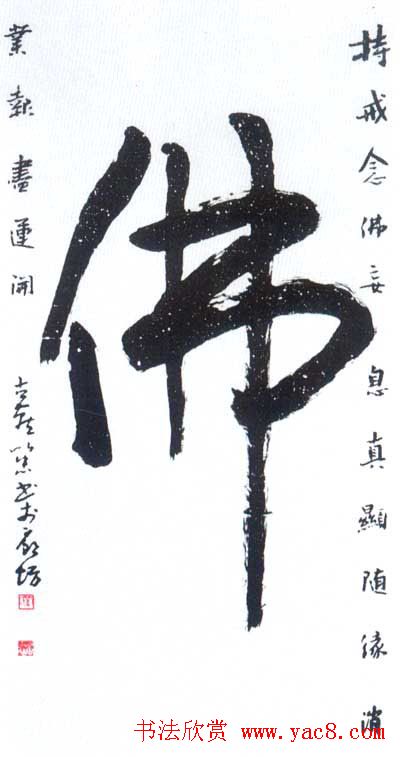 持戒念佛妄息真顯随緣消
佛
業報盡蓮開
书于
书法欣赏 www.yac8.com